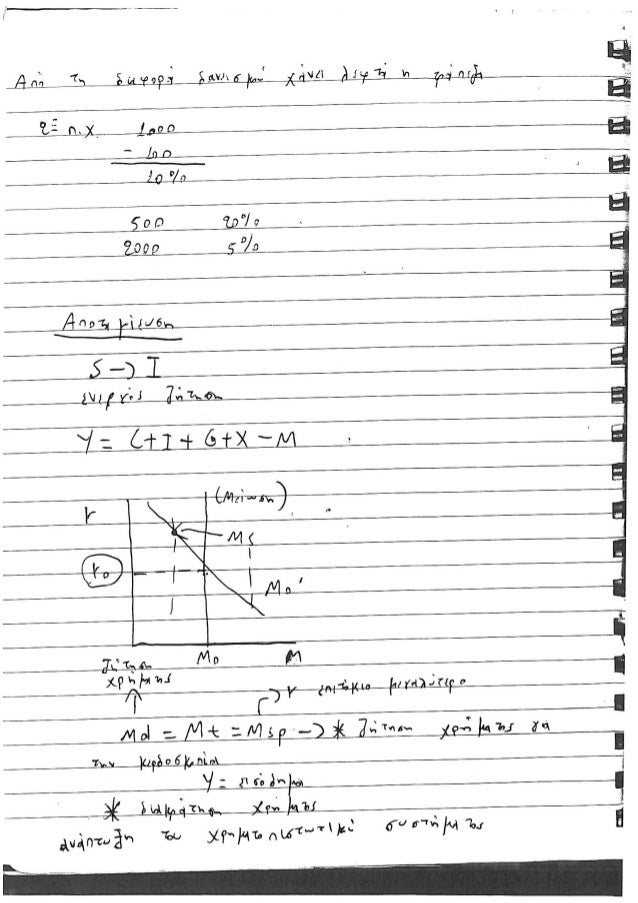 Από τη διαφορά δανεισμού χάνει λεφτά η τράπεζα
π.χ. 1000
- 100
10%
500 20%
2000 5%
Αποταμίευση
S → I
ενεργός ζήτηση
Y = C+I+G+X-M
r (Μείωση)
Ms
r₀
M₀'
M₀ M
ζήτηση
χρήματος
r επιτόκιο μεγαλύτερο
Md = Mt = Msp → * ζήτηση χρήματος για
την κερδοσκοπία
Y = εισόδημα
* διακράτηση χρήματος
ανάπτυξη του χρηματοπιστωτικού συστήματος